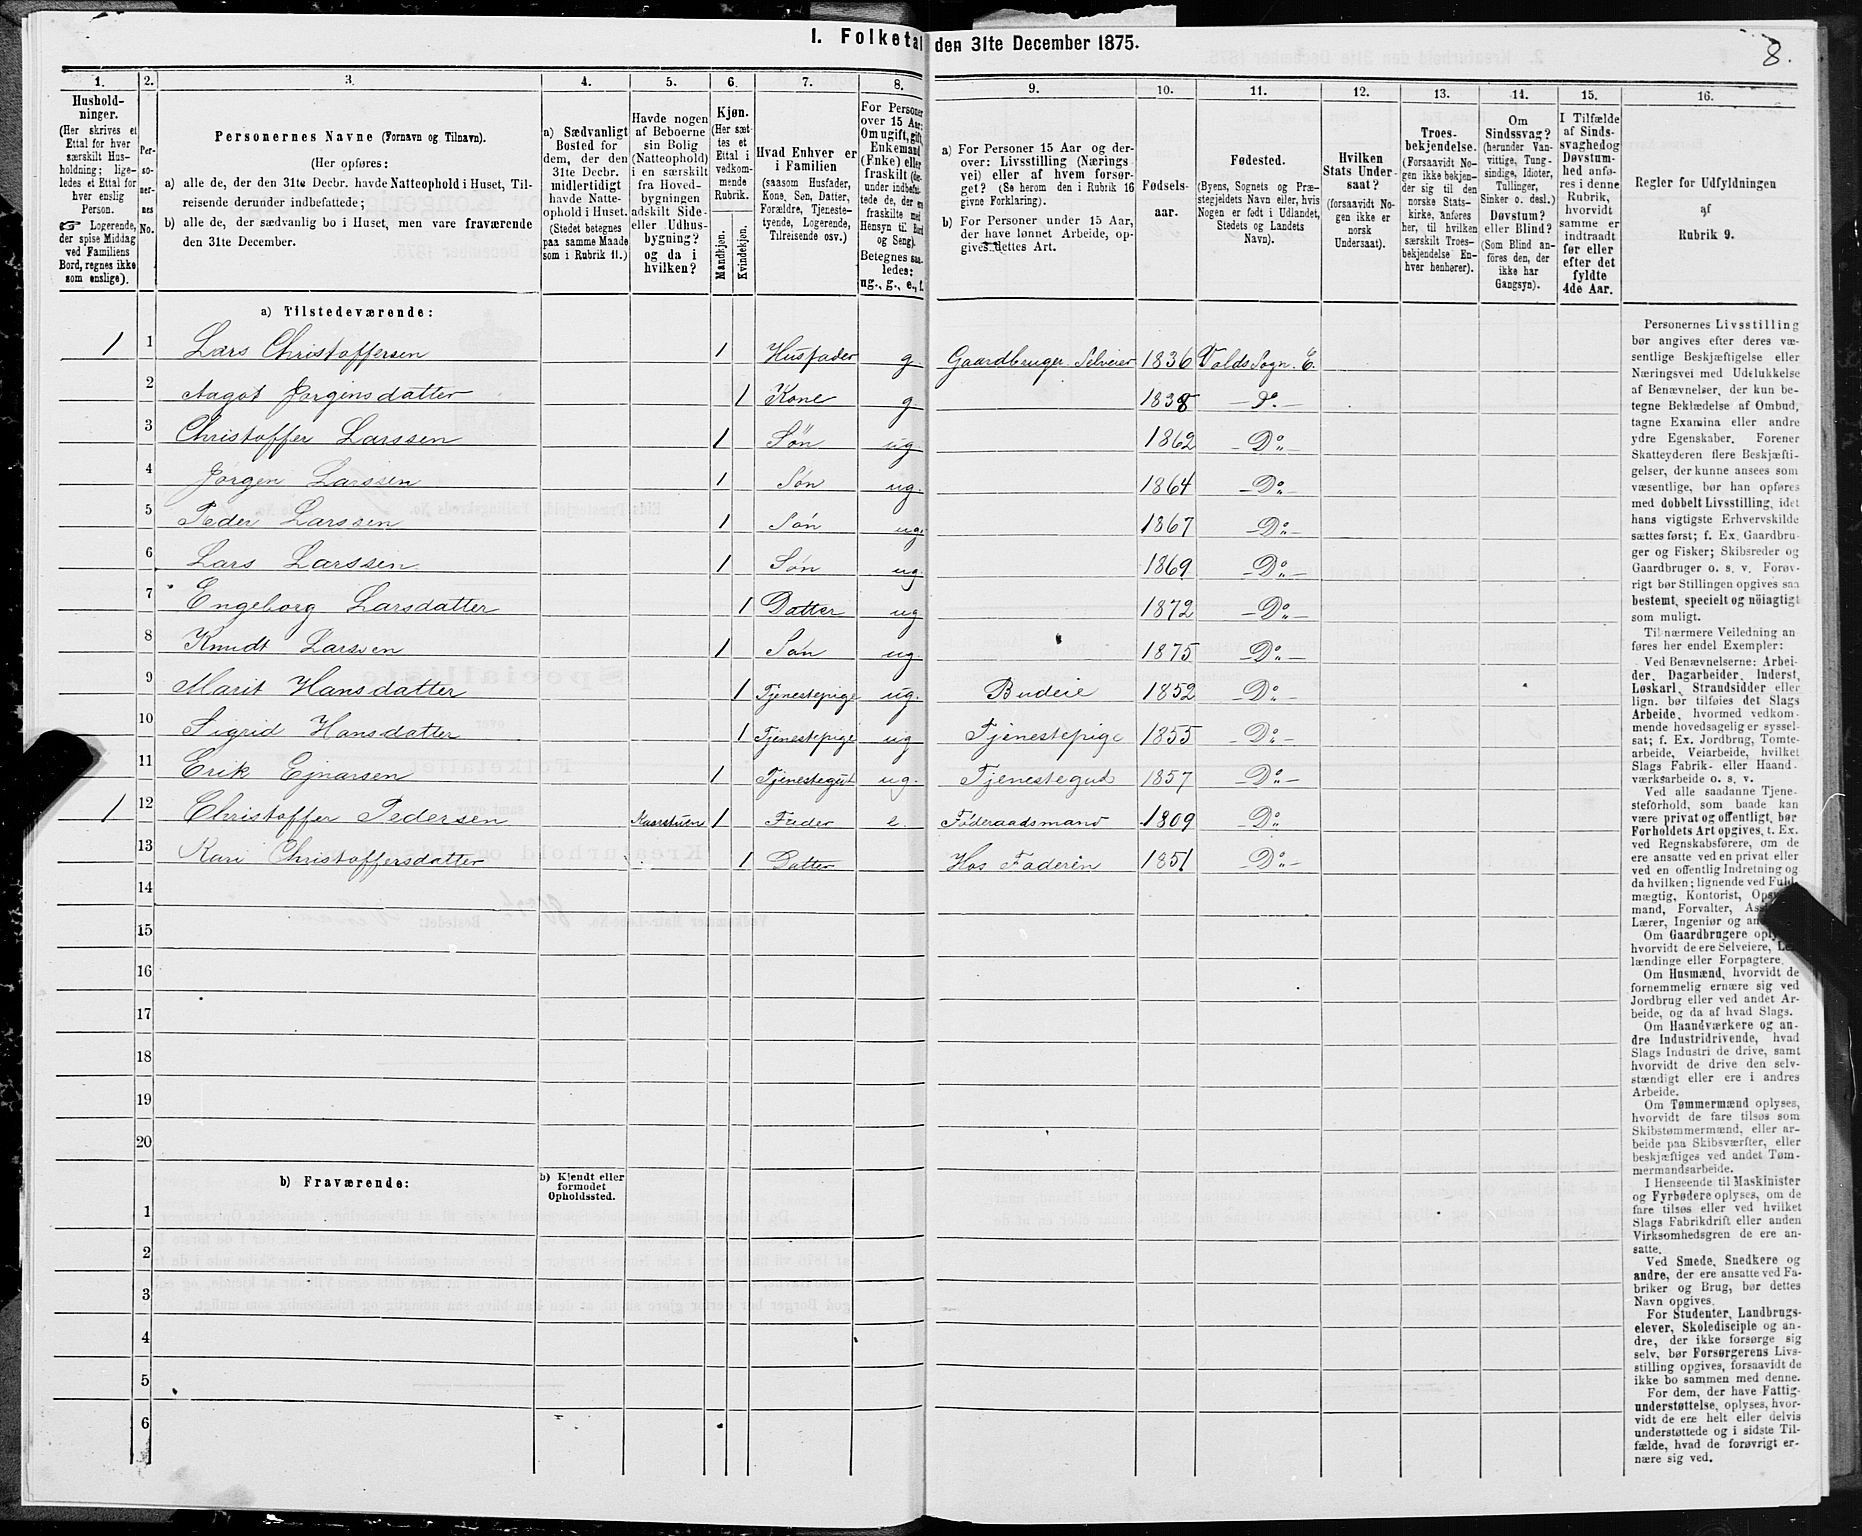 I. Folketal den 31te December 1875.
8.
1.
Hushold-
ninger.
(Her skrives et
Ettal for hver
særskilt Hus-
holdning; lige-
ledes et Ettal for
hver enslig
Person.
☞ Logerende,
der spise Middag
ved Familiens
Bord, regnes ikke
som enslige).
2.
Per-
so-
ner-
nes
No.
3.
Personernes Navne (Fornavn og Tilnavn).
(Her opføres:
a) alle de, der den 31te Decbr. havde Natteophold i Huset, Til-
reisende derunder indbefattede;
b) alle de, der sædvanlig bo i Huset, men vare fraværende
den 31te December.
4.
a) Sædvanligt
Bosted for
dem, der den
31te Decbr.
midlertidigt
havde Natte-
ophold i Huset.
(Stedet betegnes
paa samme Maade
som i Rubrik 11.)
5.
Havde nogen
af Beboerne
sin Bolig
(Natteophold)
i en særskilt
fra Hoved-
bygningen
adskilt Side-
eller Udhus-
bygning?
og da i
hvilken?
6.
Kjøn.
(Her sæt-
tes et
Ettal i
vedkom-
mende
Rubrik.
Mandkjøn.
Kvindekjøn.
7.
Hvad Enhver er
i Familien
(saasom Husfader,
Kone, Søn, Datter,
Forældre, Tjeneste-
tyende, Logerende,
Tilreisende osv.)
8.
For Personer
over 15 Aar:
Om ugift, gift,
Enkemand
(Enke) eller
fraskilt (her-
under indbefat-
tede de, der ere
fraskilte med
Hensyn til Bord
og Seng).
Betegnes saa-
ledes:
ug., g., e., f.
9.
a) For Personer 15 Aar og der-
over: Livsstilling (Nærings-
vei) eller af hvem forsør-
get? (Se herom den i Rubrik 16
givne Forklaring).
b) For Personer under 15 Aar,
der have lønnet Arbeide, op-
gives dettes Art.
10.
Fødsels-
aar.
11.
Fødested.
(Byens, Sognets og Præ-
stegjeldets Navn eller, hvis
Nogen er født i Udlandet,
Stedets og Landets
Navn).
12.
Hvilken
Stats Under-
saat?
(forsaavidt No-
gen ikke er
norsk
Undersaat).
13.
Troes-
bekjendelse.
(Forsaavidt No-
gen ikke bekjen-
der sig til den
norske Stats-
kirke, anføres
her, til hvilken
særskilt Troes-
bekjendelse En-
hver henhører).
14.
Om
Sindssvag?
(herunder Van-
vittige, Tung-
sindige, Idioter,
Tullinger,
Sinker o. desl.)
Døvstum?
eller Blind?
(Som Blind an-
føres den, der
ikke har
Gangsyn).
15.
I Tilfælde
af Sinds-
svaghed og
Døvstum-
hed anfø-
res i denne
Rubrik,
hvorvidt
samme er
indtraadt
før eller
efter det
fyldte
4de Aar.
16.
Regler for Udfyldningen
af
Rubrik 9.
a) Tilstedeværende:
1 1 Lars Christoffersen 1 Husfader g. Gaardbruger Selveier 1836 Volds Sogn. E.
2 Aagot Jørgensdatter 1 Kone g. 1838 – Do. –
3 Christoffer Larssen 1 Søn ug. 1862 – Do –
4 Jørgen Larssen 1 Søn ug. 1864 – Do –
5 Peder Larssen 1 Søn ug. 1867 – Do –
6 Lars Larssen 1 Søn ug. 1869 – Do –
7 Engeborg Larsdatter 1 Datter ug 1872 – Do –
8 Knudt Larssen 1 Søn ug. 1875 – Do –
9 Marit Hansdatter 1 Tjenestepige ug. Budeie 1852 – Do –
10 Sigrid Hansdatter 1 Tjenestepige ug Tjenestepige 1855 – Do –
11 Erik Ejnarsen 1 Tjenestegut ug. Tjenestegud 1857 – Do –
1 12 Christoffer Pedersen 1 Fader e. Föderaadsmand 1809 Do
13 Kari Christoffersdatter 1 Datter Hos Faderen 1851 – Do –
14
15
16
17
18
19
20
b) Fraværende:
b) Kjendt eller
formodet
Opholdssted.
1
2
3
4
5
6
Personernes Livsstilling
bør angives efter deres væ-
sentlige Beskjæftigelse eller
Næringsvei med Udelukkelse
af Benævnelser, der kun be-
tegne Beklædelse af Ombud,
tagne Examina eller andre
ydre Egenskaber. Forener
Skatteyderen flere Beskjæfti-
gelser, der kunne ansees som
væsentlige, bør han opføres
med dobbelt Livsstilling, idet
hans vigtigste Erhvervskilde
sættes først; f. Ex. Gaardbru-
ger og Fisker; Skibsreder og
Gaardbruger o. s. v. Forøv-
rigt bør Stillingen opgives saa
bestemt, specielt og nöiagtigt
som muligt.
Til nærmere Veiledning an
føres her endel Exempler:
Ved Benævnelserne: Arbei-
der, Dagarbeider, Inderst,
Løskarl, Strandsidder eller
lign. bør tilføies det Slags
Arbeide, hvormed vedkom-
mende hovedsagelig er syssel-
sat; f. Ex. Jordbrug, Tomte-
arbeide, Veiarbeide, hvilket
Slags Fabrik- eller Haand-
værksarbeide o. s. v.
Ved alle saadanne Tjene-
steforhold, som baade kan
være privat og offentligt, bør
Forholdets Art opgives, t. Ex.
ved Regnskabsførere, om de
ere ansatte ved en privat eller
ved en offentlig Indretning og
da hvilken; lignende ved Fuld-
mægtig, Kontorist, Opsyns-
mand, Forvalter,
Lærer, Ingeniør og
Om Gaardbrugere
hvorvidt de ere Selveiere, Lei-
lændinge eller Forpagtere.
Om Husmænd, hvorvidt de
fornemmelig ernære sig ved
Jordbrug eller ved andet Ar-
beide, og da af hvad Slags.
Om Haandværkere og an-
dre Industridrivende, hvad
Slags Industri de drive, samt
hvorvidt de drive den selv-
stændigt eller ere i andres
Arbeide.
Om Tømmermænd oplyses,
hvorvidt de fare tilsøs som
Skibstømmermænd, eller ar-
beide paa Skibsværfter, eller
beskjæftiges ved andet Tøm-
mermandsarbeide.
I Henseende til Maskinister
og Fyrbødere oplyses, om de
fare tilsøs eller ved hvilket
Slags Fabrikdrift eller anden
Virksomhedsgren de ere an-
satte.
Ved Smede, Snedkere og
andre, der ere ansatte ved Fa-
briker og Brug, bør dettes
Navn opgives.
For Studenter, Landbrugs-
elever, Skoledisciple og an-
dre, der ikke forsørge sig
selv, bør Forsørgerens Livs-
stilling opgives, forsaavidt de
ikke bo sammen med denne.
For dem, der have Fattig-
understøttelse, oplyses, hvor-
vidt de ere helt eller delvis
understøttede og i sidste Til-
fælde, hvad de forøvrigt er-
nære sig ved.